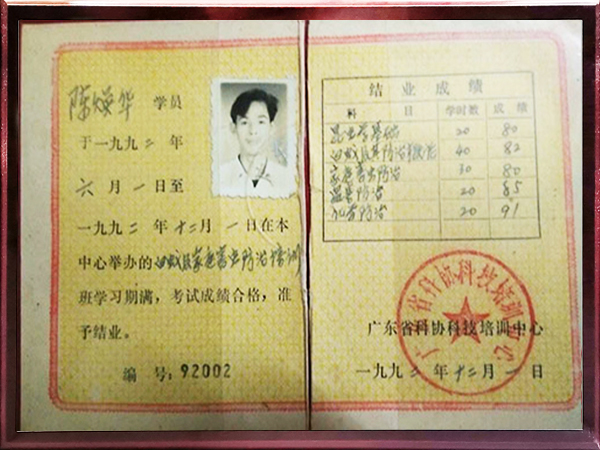 陈焕华 学员
于一九九二年
六月一日至
一九九二年十二月一日在本
中心举办的白蚁及家庭害虫防治培训
班学习期满，考试成绩合格，准
予结业。
编号：92002
结业成绩
科目 学时数 成绩
昆虫学基础 20 80
白蚁及其防治 40 82
家庭害虫防治 30 80
20 85
20 91
广东省科协科技培训中心
一九九二年十二月一日
广东省科协科技培训中心